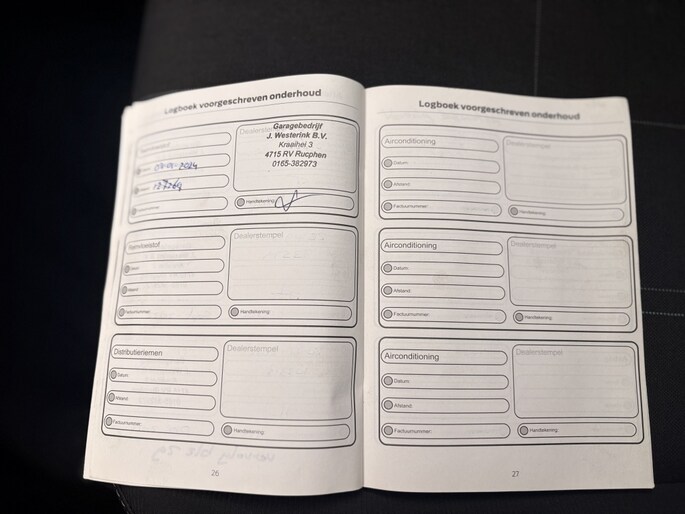 Logboek voorgeschreven onderhoud
Remvloeistof
Dealerstempel
Garagebedrijf
J. Westerink B.V.
Kraaihei 3
4715 RV Rucphen
0165-382973
Datum:
Afstand:
Factuurnummer:
Handtekening:
Remvloeistof
Dealerstempel
Datum:
Afstand:
Factuurnummer:
Handtekening:
Distributieriemen
Dealerstempel
Datum:
Afstand:
Factuurnummer:
Handtekening:
26
Logboek voorgeschreven onderhoud
Airconditioning
Dealerstempel
Datum:
Afstand:
Factuurnummer:
Handtekening:
Airconditioning
Dealerstempel
Datum:
Afstand:
Factuurnummer:
Handtekening:
Airconditioning
Dealerstempel
Datum:
Afstand:
Factuurnummer:
Handtekening:
27